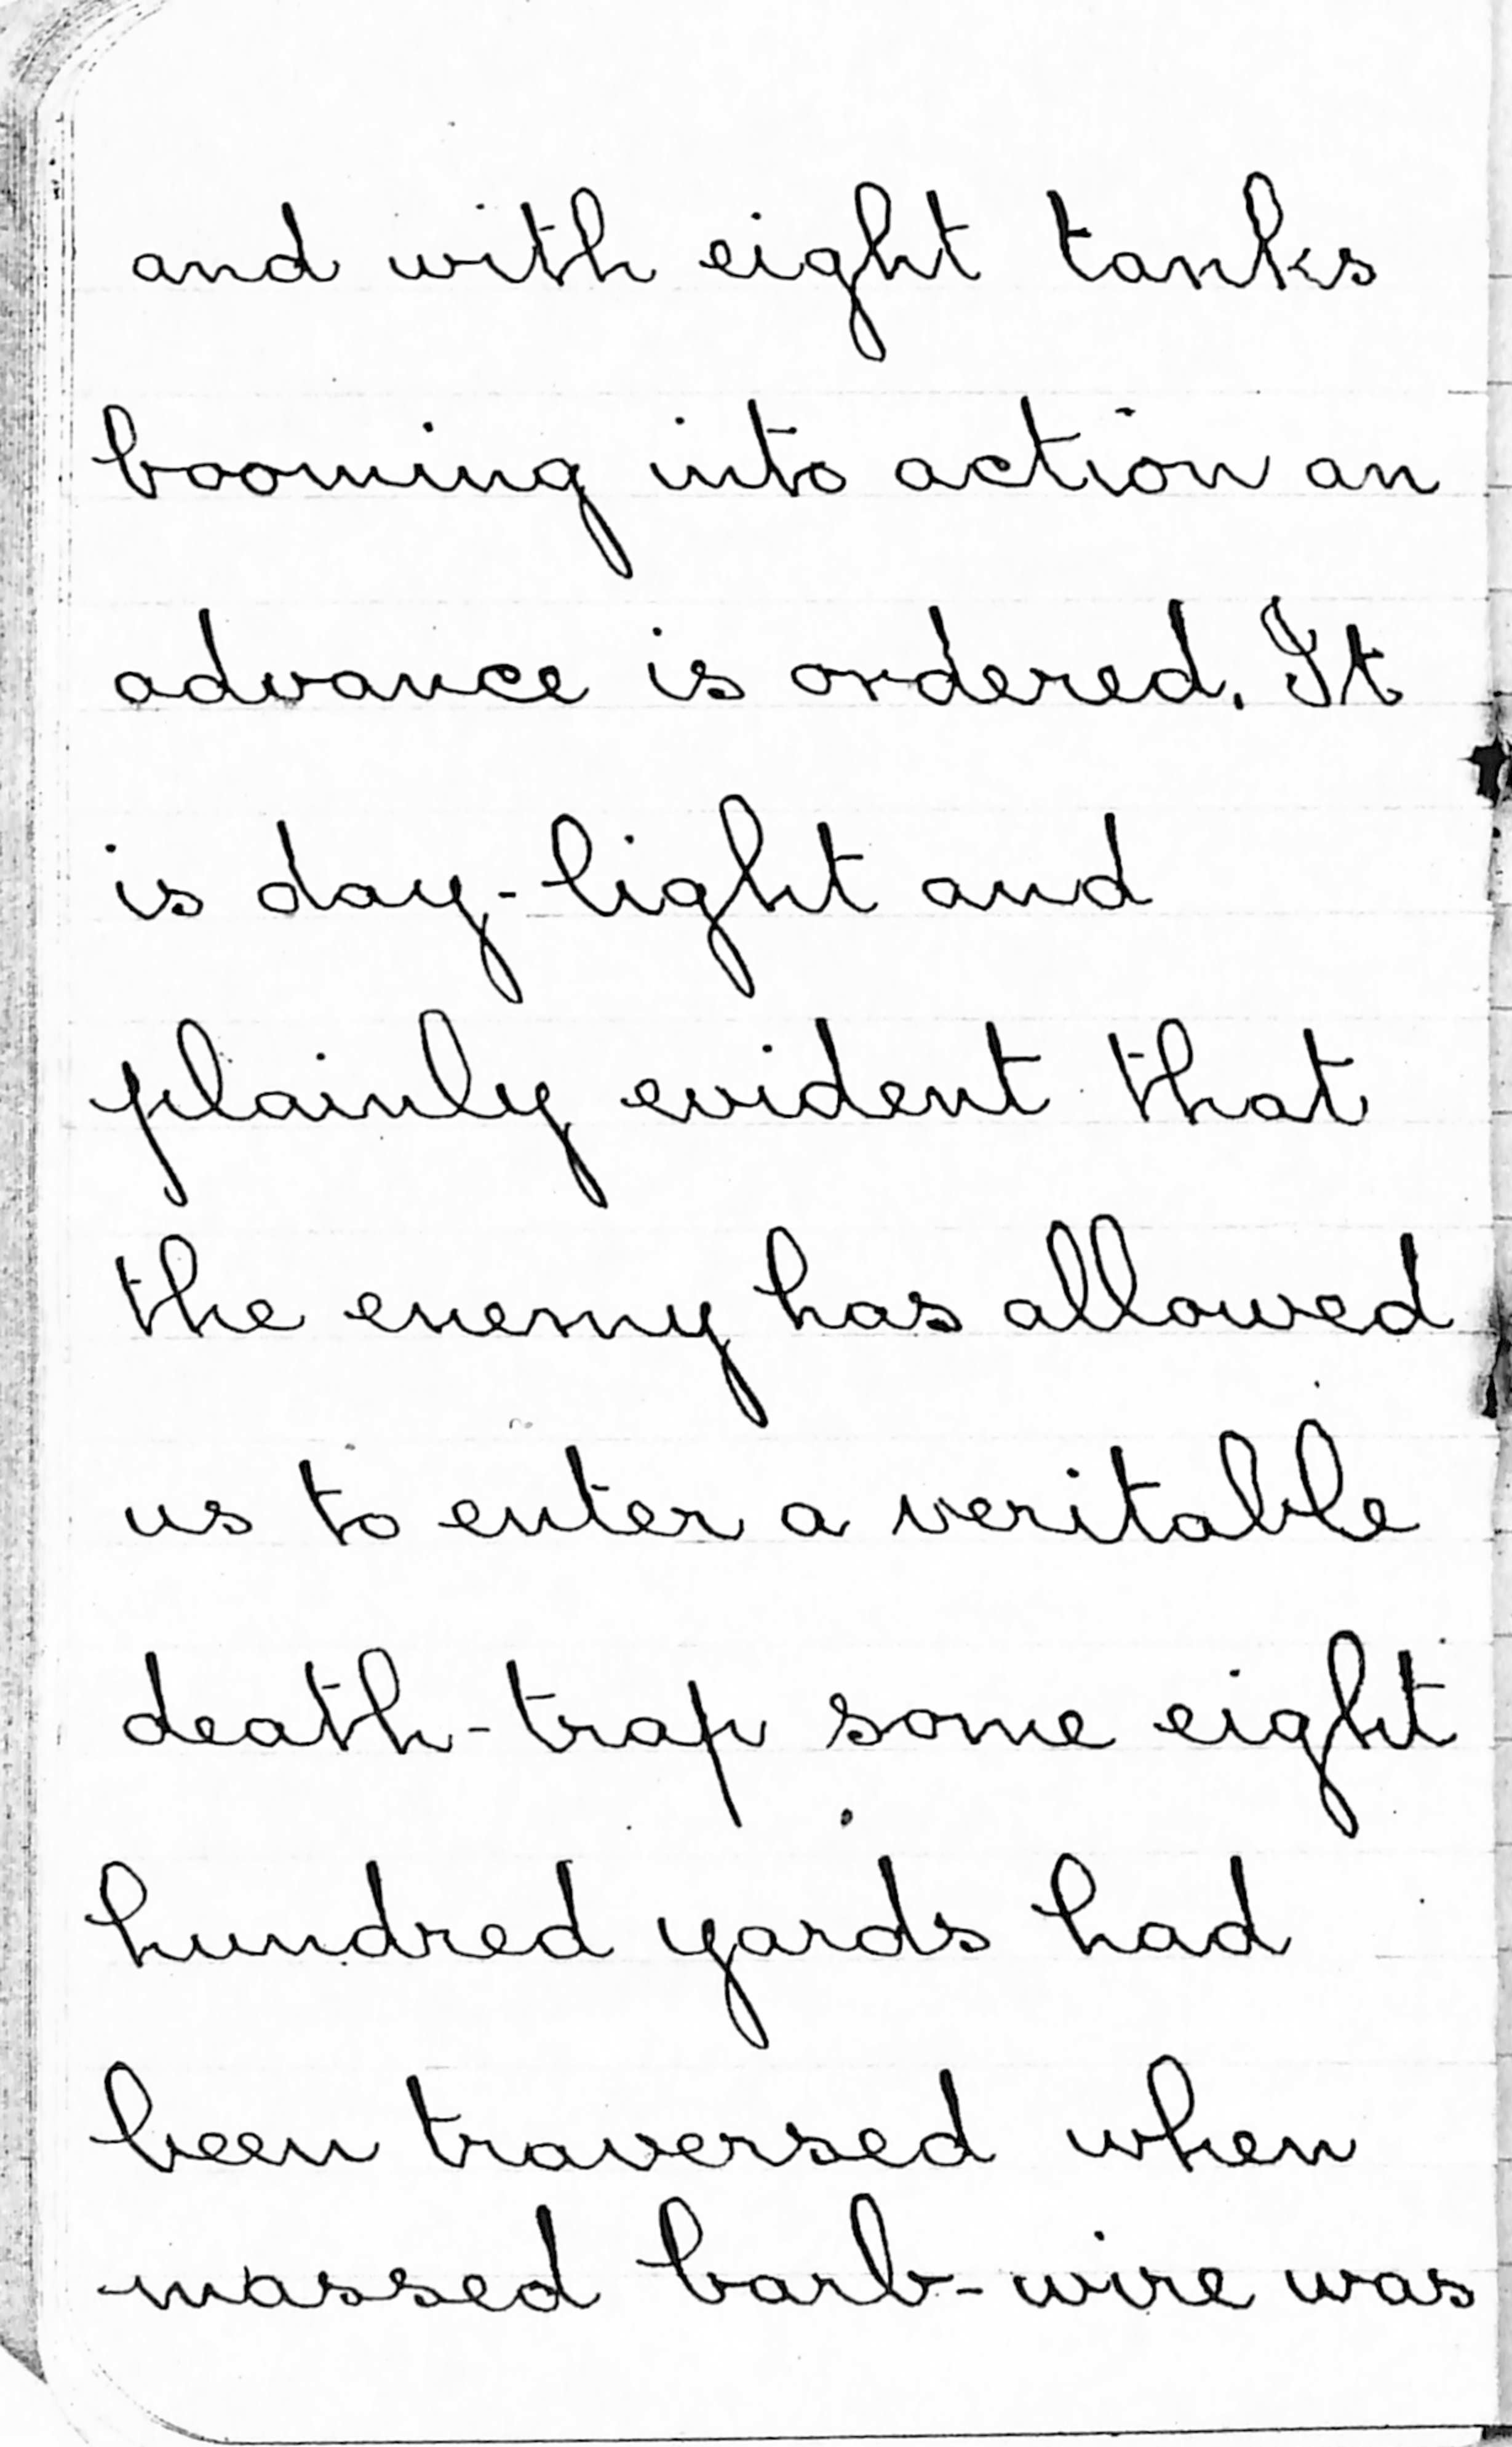 and with eight tanks
booming into action an
advance is ordered. It
is day-light and
plainly evident that
the enemy has allowed
us to enter a veritable
death-trap some eight
hundred yards had
been traversed when
massed barb-wire was